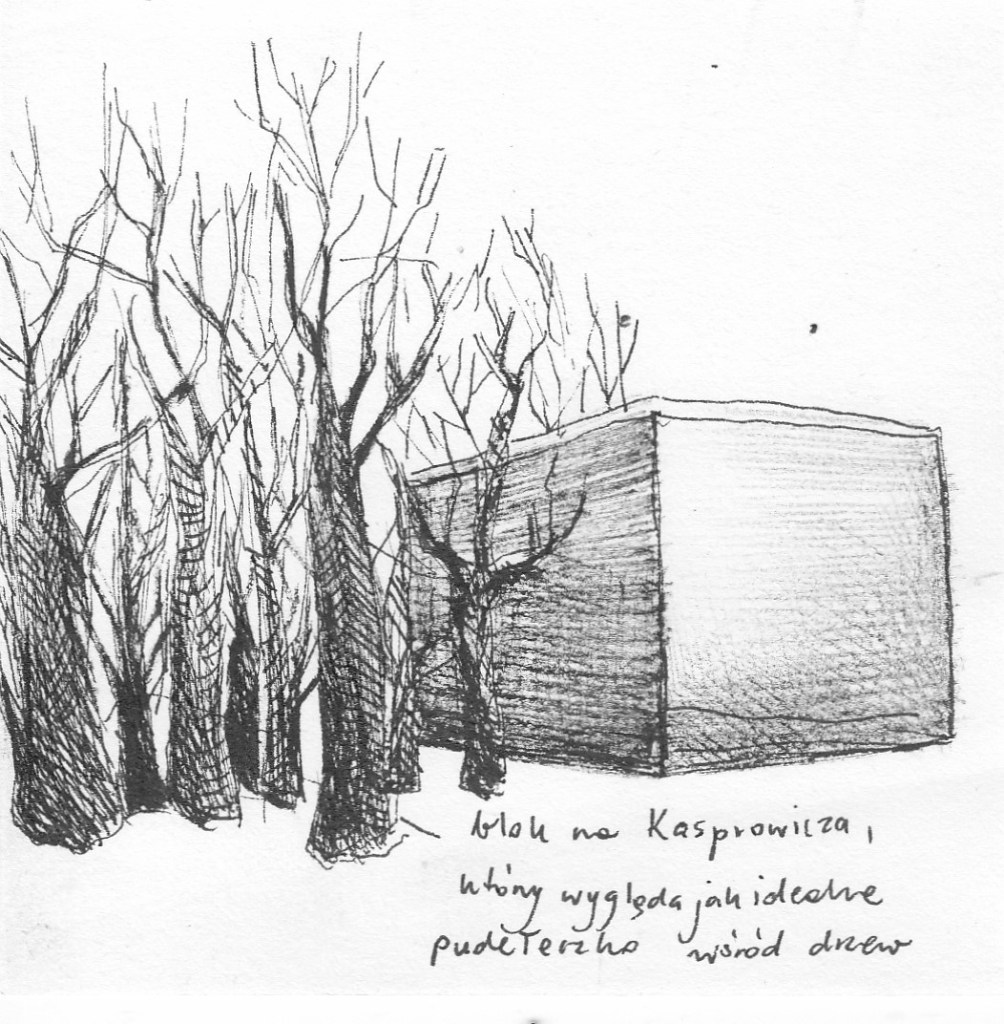 blok na Kasprowicza,
który wygląda jak idealne
pudełeczko wśród drzew